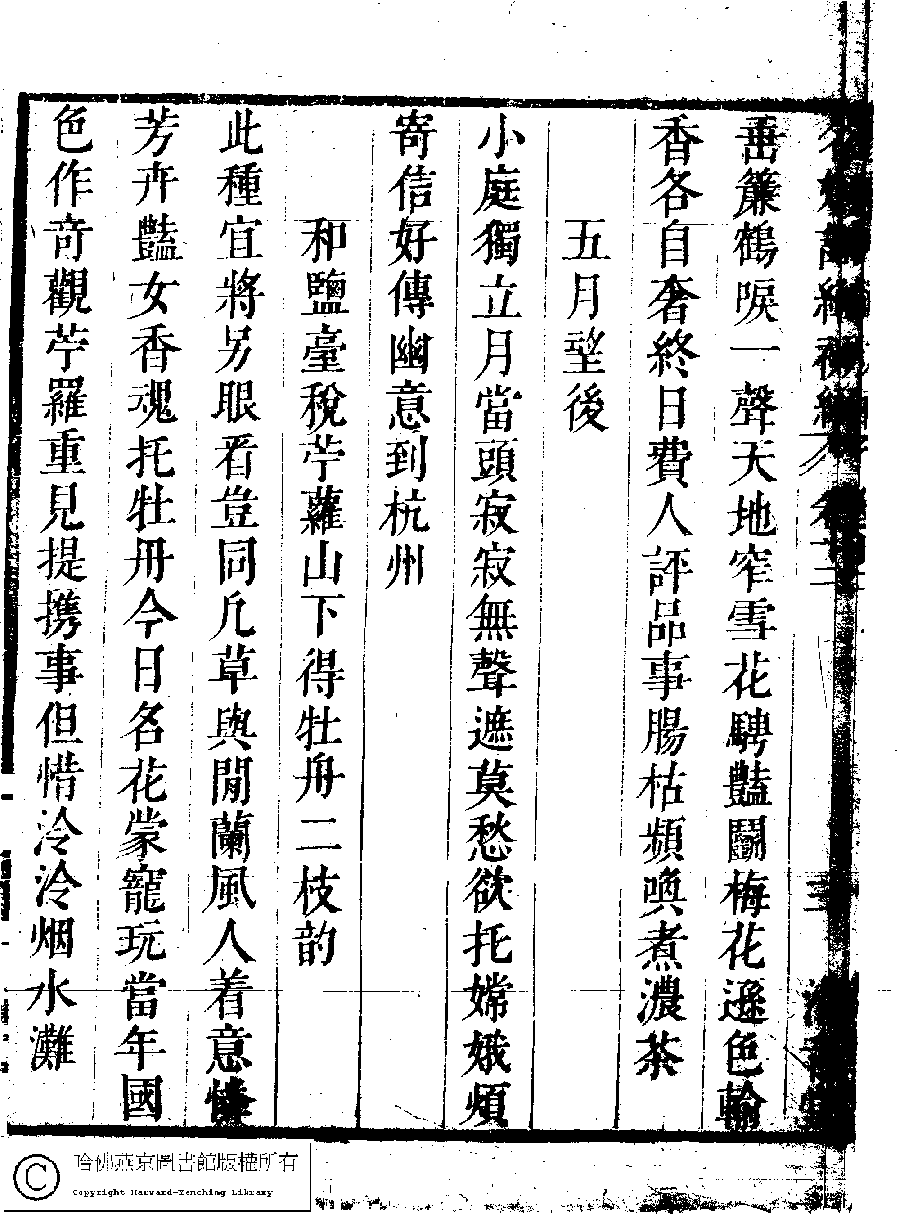 垂簾鶴唳一聲天地窄雪花騁豔鬬梅花遜色輸
香各自奢終日費人評品事腸枯頻喚煮濃茶
五月朢後
小庭獨立月當頭寂寂無聲遮莫愁欲托嫦娥煩
寄信好傳幽意到杭州
和鹽臺稅苧蘿山下得牡丹二枝韵
此種宜將另眼看豈同凡草與閒蘭風人着意憐
芳卉豔女香魂托牡丹今日名花蒙寵玩當年國
色作奇觀苧羅重見提携事但惜泠泠烟水灘
哈佛燕京圖書館版權所有
Copyright Harvard-Yenching Library